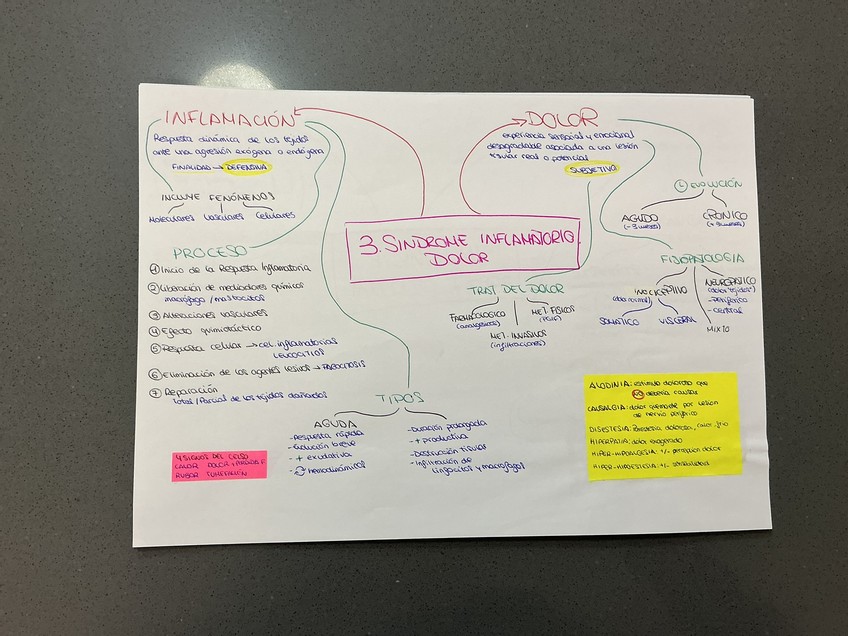 INFLAMACIÓN
Respuesta dinámica de los tejidos
ante una agresión exógena o endógena
FINALIDAD → DEFENSIVA
INCLUYE FENÓMENOS
Moleculares Vasculares Celulares
PROCESO
① Inicio de la Respuesta Inflamatoria
② Liberación de mediadores químicos
macrófago / mastocitos
③ Alteraciones vasculares
④ Efecto quimiotáctico
⑤ Respuesta celular → cel. inflamatorias
LEUCOCITOS
⑥ Eliminación de los agentes lesivos → FAGOCITOSIS
⑦ Reparación
Total/Parcial de los tejidos dañados
4 SIGNOS DEL CELSO
CALOR, DOLOR, PÉRDIDA F
RUBOR TUMEFACCIÓN
3. SINDROME INFLAMATORIO
DOLOR
TIPOS
AGUDA
- Respuesta rápida
- Evolución breve
- + exudativa
- Hemodinámicos
- Duración prolongada
- + productiva
- Destrucción tisular
- Infiltración de
linfocitos y macrófagos
DOLOR
experiencia sensorial y emocional
desagradable asociada a una lesión
tisular real o potencial
SUBJETIVO
EVOLUCIÓN
AGUDO
(-3 meses)
CRÓNICO
(+3 meses)
FISIOPATOLOGIA
NOCICEPTIVO
(dolor normal)
SOMÁTICO VISCERAL
NEUROPÁTICO
- Periférico
- Central
MIXTO
TRAT DEL DOLOR
FARMACOLÓGICO
(analgésicos)
MET. FÍSICOS
MET. INVASIVOS
(infiltraciones)
ALODINIA: estímulo doloroso que
NO debería causar
CAUSALGIA: dolor quemante por lesión
de nervio periférico
DISESTESIA: Parestesia dolorosa, calor, frio
HIPERPATIA: dolor exagerado
HIPER-HIPOALGESIA: +/- percepción dolor
HIPER-HIPOESTESIA: +/- sensibilidad